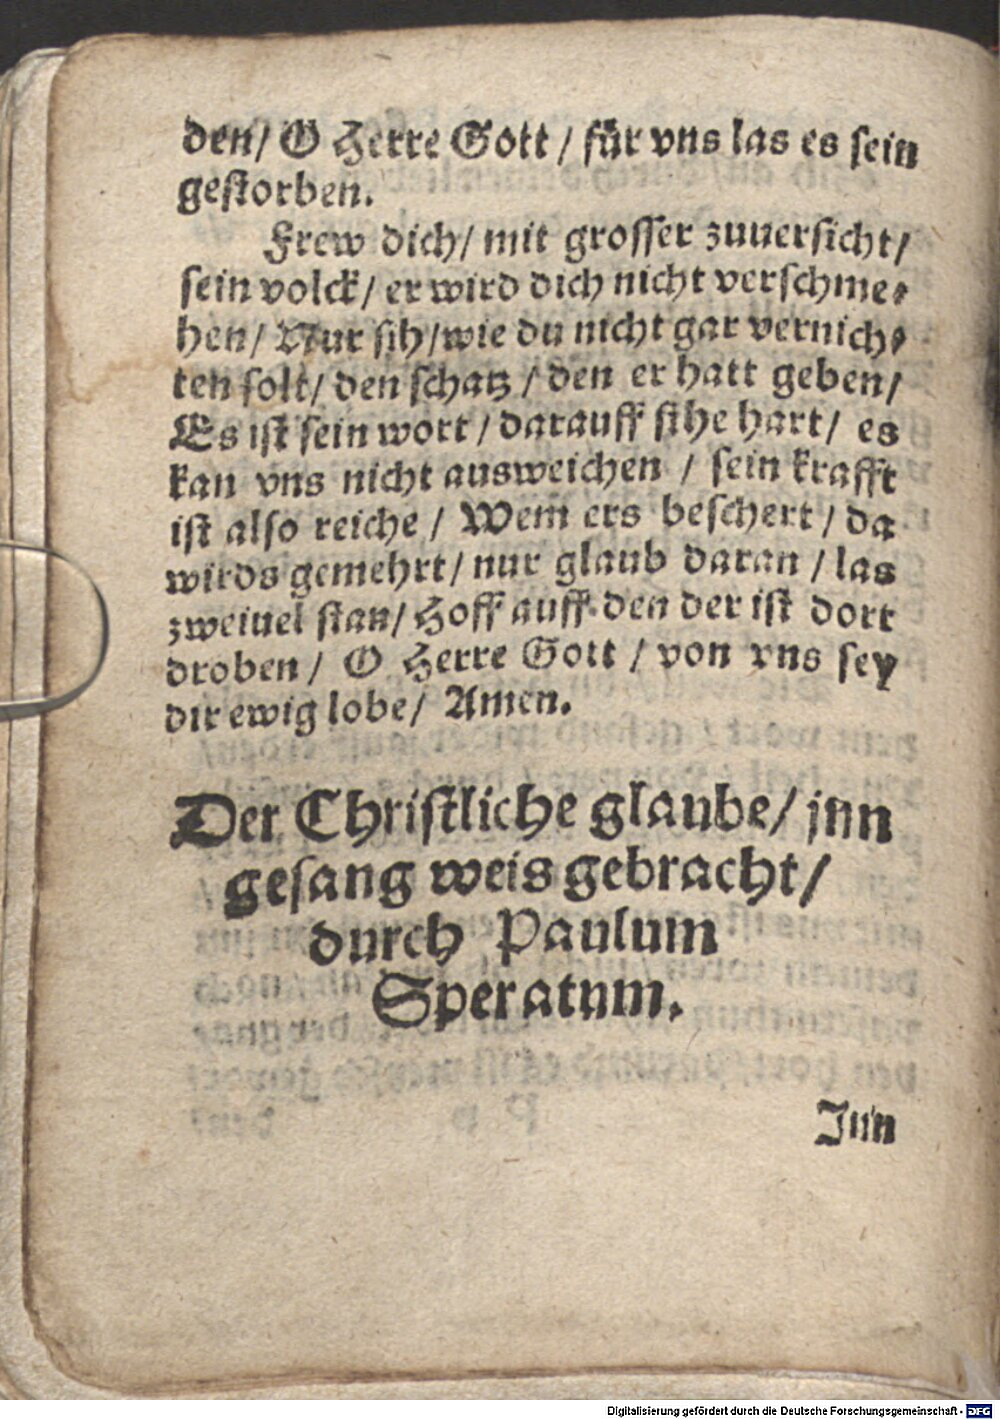 den/ O Herre Gott / für vns las es sein
gestorben.
Frew dich/ mit grosser zuuersicht/
sein volck/ er wird dich nicht verschme⸗
hen/ Nur sih/ wie du nicht gar vernich⸗
ten solt/ den schatz / den er hatt geben/
Es ist sein wort / darauff sihe hart/ es
kan vns nicht ausweichen / sein krafft
ist also reiche / Wem ers beschert / da
wirds gemehrt/ nur glaub daran / las
zweiuel stan/ Hoff auff den der ist dort
droben / O Herre Gott / von vns sey
dir ewig lobe/ Amen.
Der Christliche glaube/ jnn
gesang weis gebracht/
durch Paulum
Speratum.
Jnn
Digitalisierung gefördert durch die Deutsche Forschungsgemeinschaft - DFG